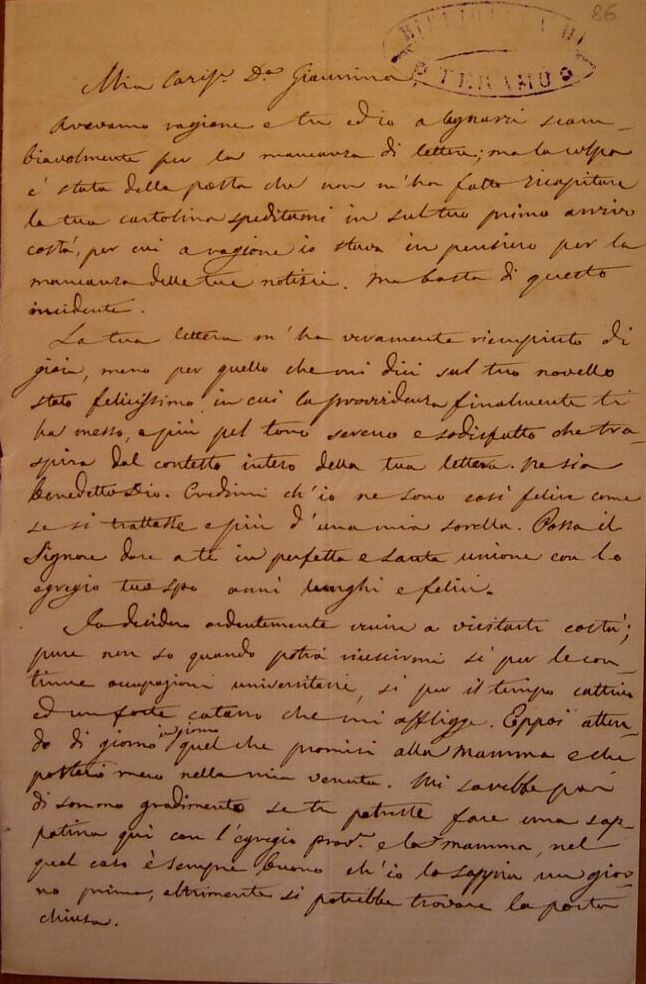 86
BIBLIOTECA DI
TERAMO
Mia Carisª. Dª. Giannina,
Avevamo ragione e tu ed io a lagnarci scam-
biavolmente per la mancanza di lettere; ma la colpa
è stata della posta che non m'ha fatto ricapitare
la tua cartolina speditami in sul tuo primo arrivo
costà, per cui a ragione io stava in pensiero per la
mancanza delle tue notizie. Ma basta di questo
incidente.
La tua lettera m'ha vivamente riempiuto di
gioia, meno per quello che mi dici sul tuo novello
stato felicissimo, in cui la provvidenza finalmente ti
ha messo, e più pel tono sereno e sodisfatto che tra-
spira dal contesto intero della tua lettera. Ne sia
benedetto Iddio. Credimi ch'io ne sono così felice come
se si trattasse e più d'una mia sorella. Possa il
Signore dare a te in perfetta e santa unione con lo
egregio tuo spo anni lunghi e felici.
Io desidero ardentemente venire a visitarti costà;
pure non so quando potrà riuscirmi sì per le con-
tinue occupazioni universitarie, sì per il tempo cattivo
ed un forte catarro che mi affligge. Eppoi atten-
do di giorno in giorno quel che promisi alla Mamma e che
porterò meco nella mia venuta. Mi sarebbe poi
di sommo gradimento se tu potessi fare una sap-
patina qui con l'egregio prof. e la mamma, nel
qual caso è sempre buono ch'io lo sappia un gior-
no prima, altrimenti si potrebbe trovare la porta
chiusa.